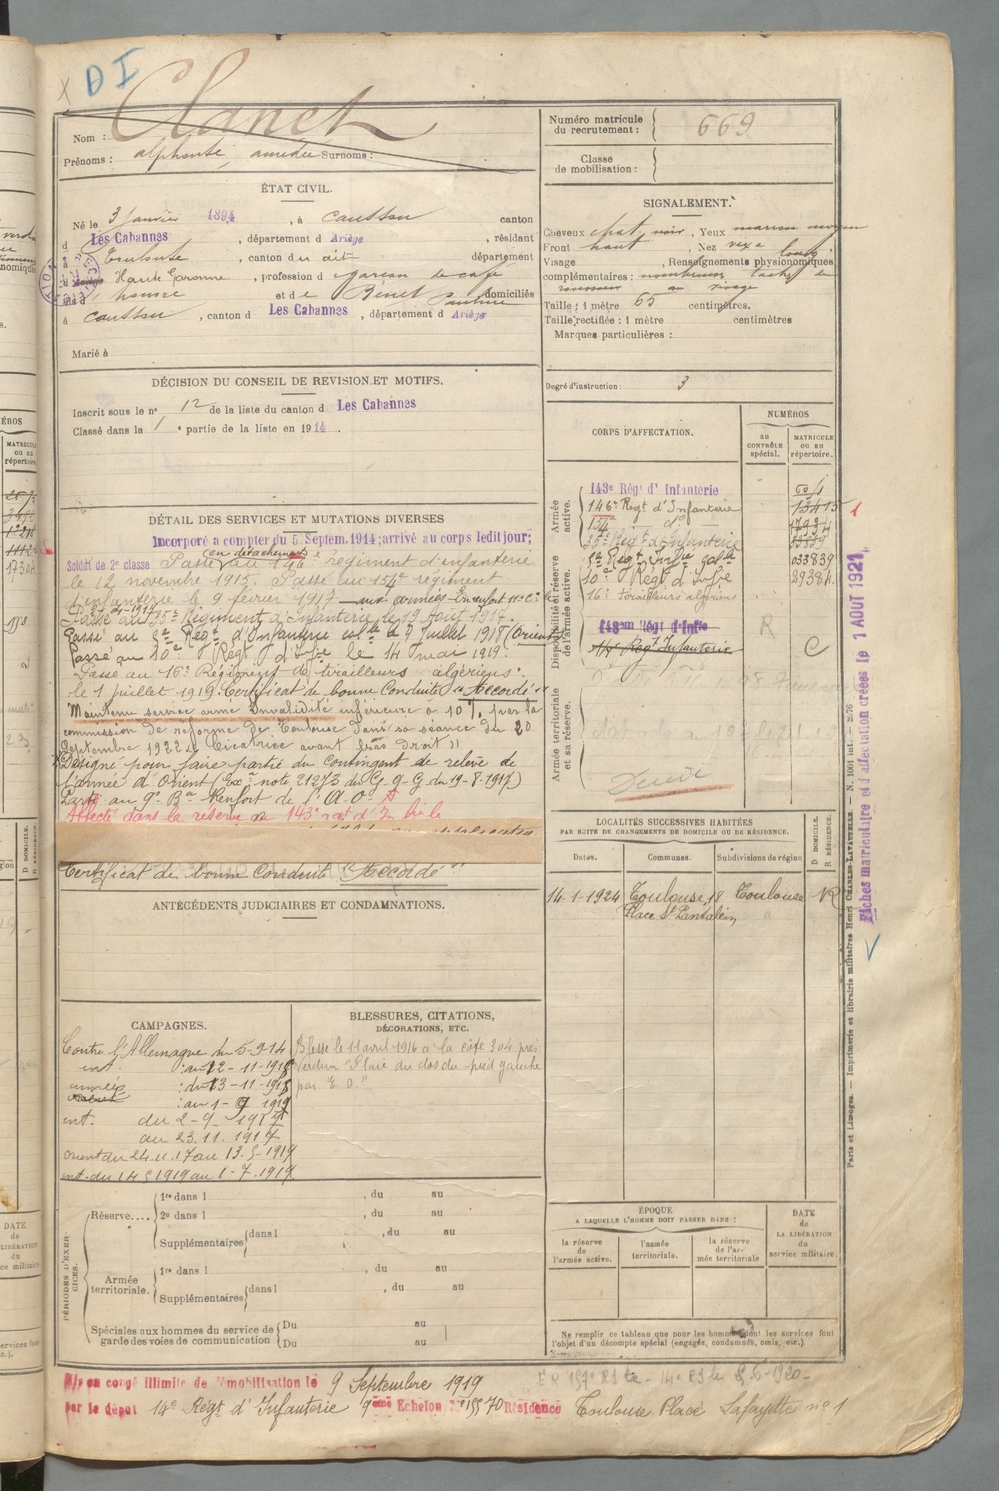 D I
Nom : Clanet
Prénoms : alphonse, amédée Surnoms :
Numéro matricule du recrutement : 669
Classe de mobilisation :
ÉTAT CIVIL.
Né le 3 janvier 1894, à Caussou canton
d Les Cabannes, département d Ariège, résidant
à Toulouse, canton du dit département
d Haute Garonne, profession d garçon de café
fils d et de Bénet Pauline domiciliés
à Caussou, canton d Les Cabannes, département d Ariège
Marié à
SIGNALEMENT.
Cheveux chat. noir, Yeux marron moyen
Front haut, Nez vexe
Visage long, Renseignements physionomiques
complémentaires : nombreuses taches de
rousseur au visage
Taille : 1 mètre 65 centimètres.
Taille rectifiée : 1 mètre centimètres
Marques particulières :
Degré d'instruction : 3
DÉCISION DU CONSEIL DE REVISION ET MOTIFS.
Inscrit sous le n° 12 de la liste du canton d Les Cabannes
Classé dans la 1 e partie de la liste en 1914.
DÉTAIL DES SERVICES ET MUTATIONS DIVERSES
Incorporé a compter du 5 Septem. 1914; arrivé au corps ledit jour;
Soldat de 2e classe Passé (en détachement) au 146e régiment d'infanterie
le 12 novembre 1915. Passé au 154e régiment
d'infanterie le 9 février 1917 aux armées
Passé au 35e Régiment d'Infanterie le 19 Août 1917.
Passé au 3e Régt d'Infanterie colle le 9 Juillet 1918 (Orient)
Passé au 10e Régt d'Infie le 14 mai 1919.
Passé au 16e Régiment de tirailleurs algériens
le 1 juillet 1919. Certificat de bonne Conduite "Accordé"
Maintenu service armé Invalidité inférieure à 10 % par la
commission de réforme de Toulouse dans sa séance du 20
Septembre 1922 "Cicatrice avant bras droit"
Désigné pour faire partie du Contingent de relève de
l'armée d'Orient (Exon note 21273 du G. Q. G. du 19-8-1917)
Parti au 9e Bon Renfort de l'A. O.
Affecté dans la réserve au 143e rgt d'Infie
Certificat de bonne Conduite "Accordé"
CORPS D'AFFECTATION.
NUMÉROS
AU CONTRÔLE spécial.
MATRICULE OU AU répertoire.
Armée active.
143e Régt d'Infanterie
146e Régt d'Infanterie 13415
154e do
35e Régt d'Infanterie
3e Régt Infie colle 033839
10e Régt d'Infie 89384
16e tirailleurs algériens
Disponibilité et réserve de l'armée active.
143em Régt d'Infie R
Régt Infanterie C
Armée territoriale et sa réserve.
LOCALITÉS SUCCESSIVES HABITÉES
PAR SUITE DE CHANGEMENTS DE DOMICILE OU DE RÉSIDENCE.
Dates. Communes. Subdivisions de région D DOMICILE. R RÉSIDENCE.
14-1-1924 Toulouse, 18 Toulouse R
Place St Pantaléon
ANTÉCÉDENTS JUDICIAIRES ET CONDAMNATIONS.
CAMPAGNES.
Contre l'Allemagne du 5-9-14
int. : au 12-11-1915
armées : du 13-11-1915
: au 1-9 1917
int. du 2-9-1917
au 23.11.1917
orient du 24.11.17 au 13.5-1919
int. du 14 5 1919 au 1-7.1919
BLESSURES, CITATIONS, DÉCORATIONS, ETC.
Blessé le 11 avril 1916 à la côte 304 près
Verdun "Plaie du dos du pied gauche
par E. O."
PÉRIODES D'EXERCICES.
Réserve....
1re dans l , du au
2e dans l , du au
Supplémentaires dans l , du au
Armée territoriale.
1re dans l , du au
Supplémentaires dans l , du au
Spéciales aux hommes du service de garde des voies de communication
Du au
Du au
ÉPOQUE
A LAQUELLE L'HOMME DOIT PASSER DANS :
la réserve de l'armée active.
l'armée territoriale.
la réserve de l'armée territoriale
DATE de LA LIBÉRATION du service militaire.
Ne remplir ce tableau que pour les hommes dont les services font
l'objet d'un décompte spécial (engagés, condamnés, omis, etc.).
Mis en congé illimité de démobilisation le 9 Septembre 1919
par le dépôt 14e Régt d'Infanterie 9ème Echelon N° 15570 Résidence Toulouse Place Lafayette n° 1
Fiches matriculaire et d'affectation créées le 1 AOUT 1921
Paris et Limoges. — Imprimerie et librairie militaires Henri CHARLES-LAVAUZELLE